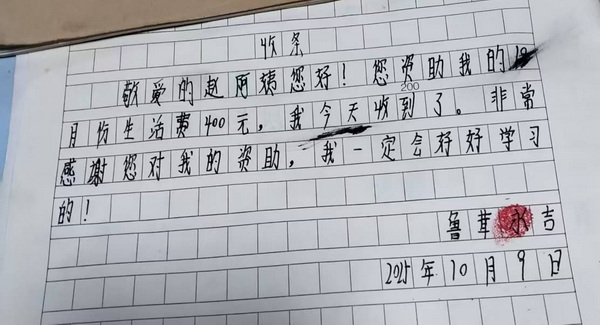 收条
敬爱的赵阿姨您好！您资助我的10
月份生活费400元，我今天收到了。非常
200
感谢您对我的资助，我一定会好好学习
的！
鲁茸永吉
2025年10月9日